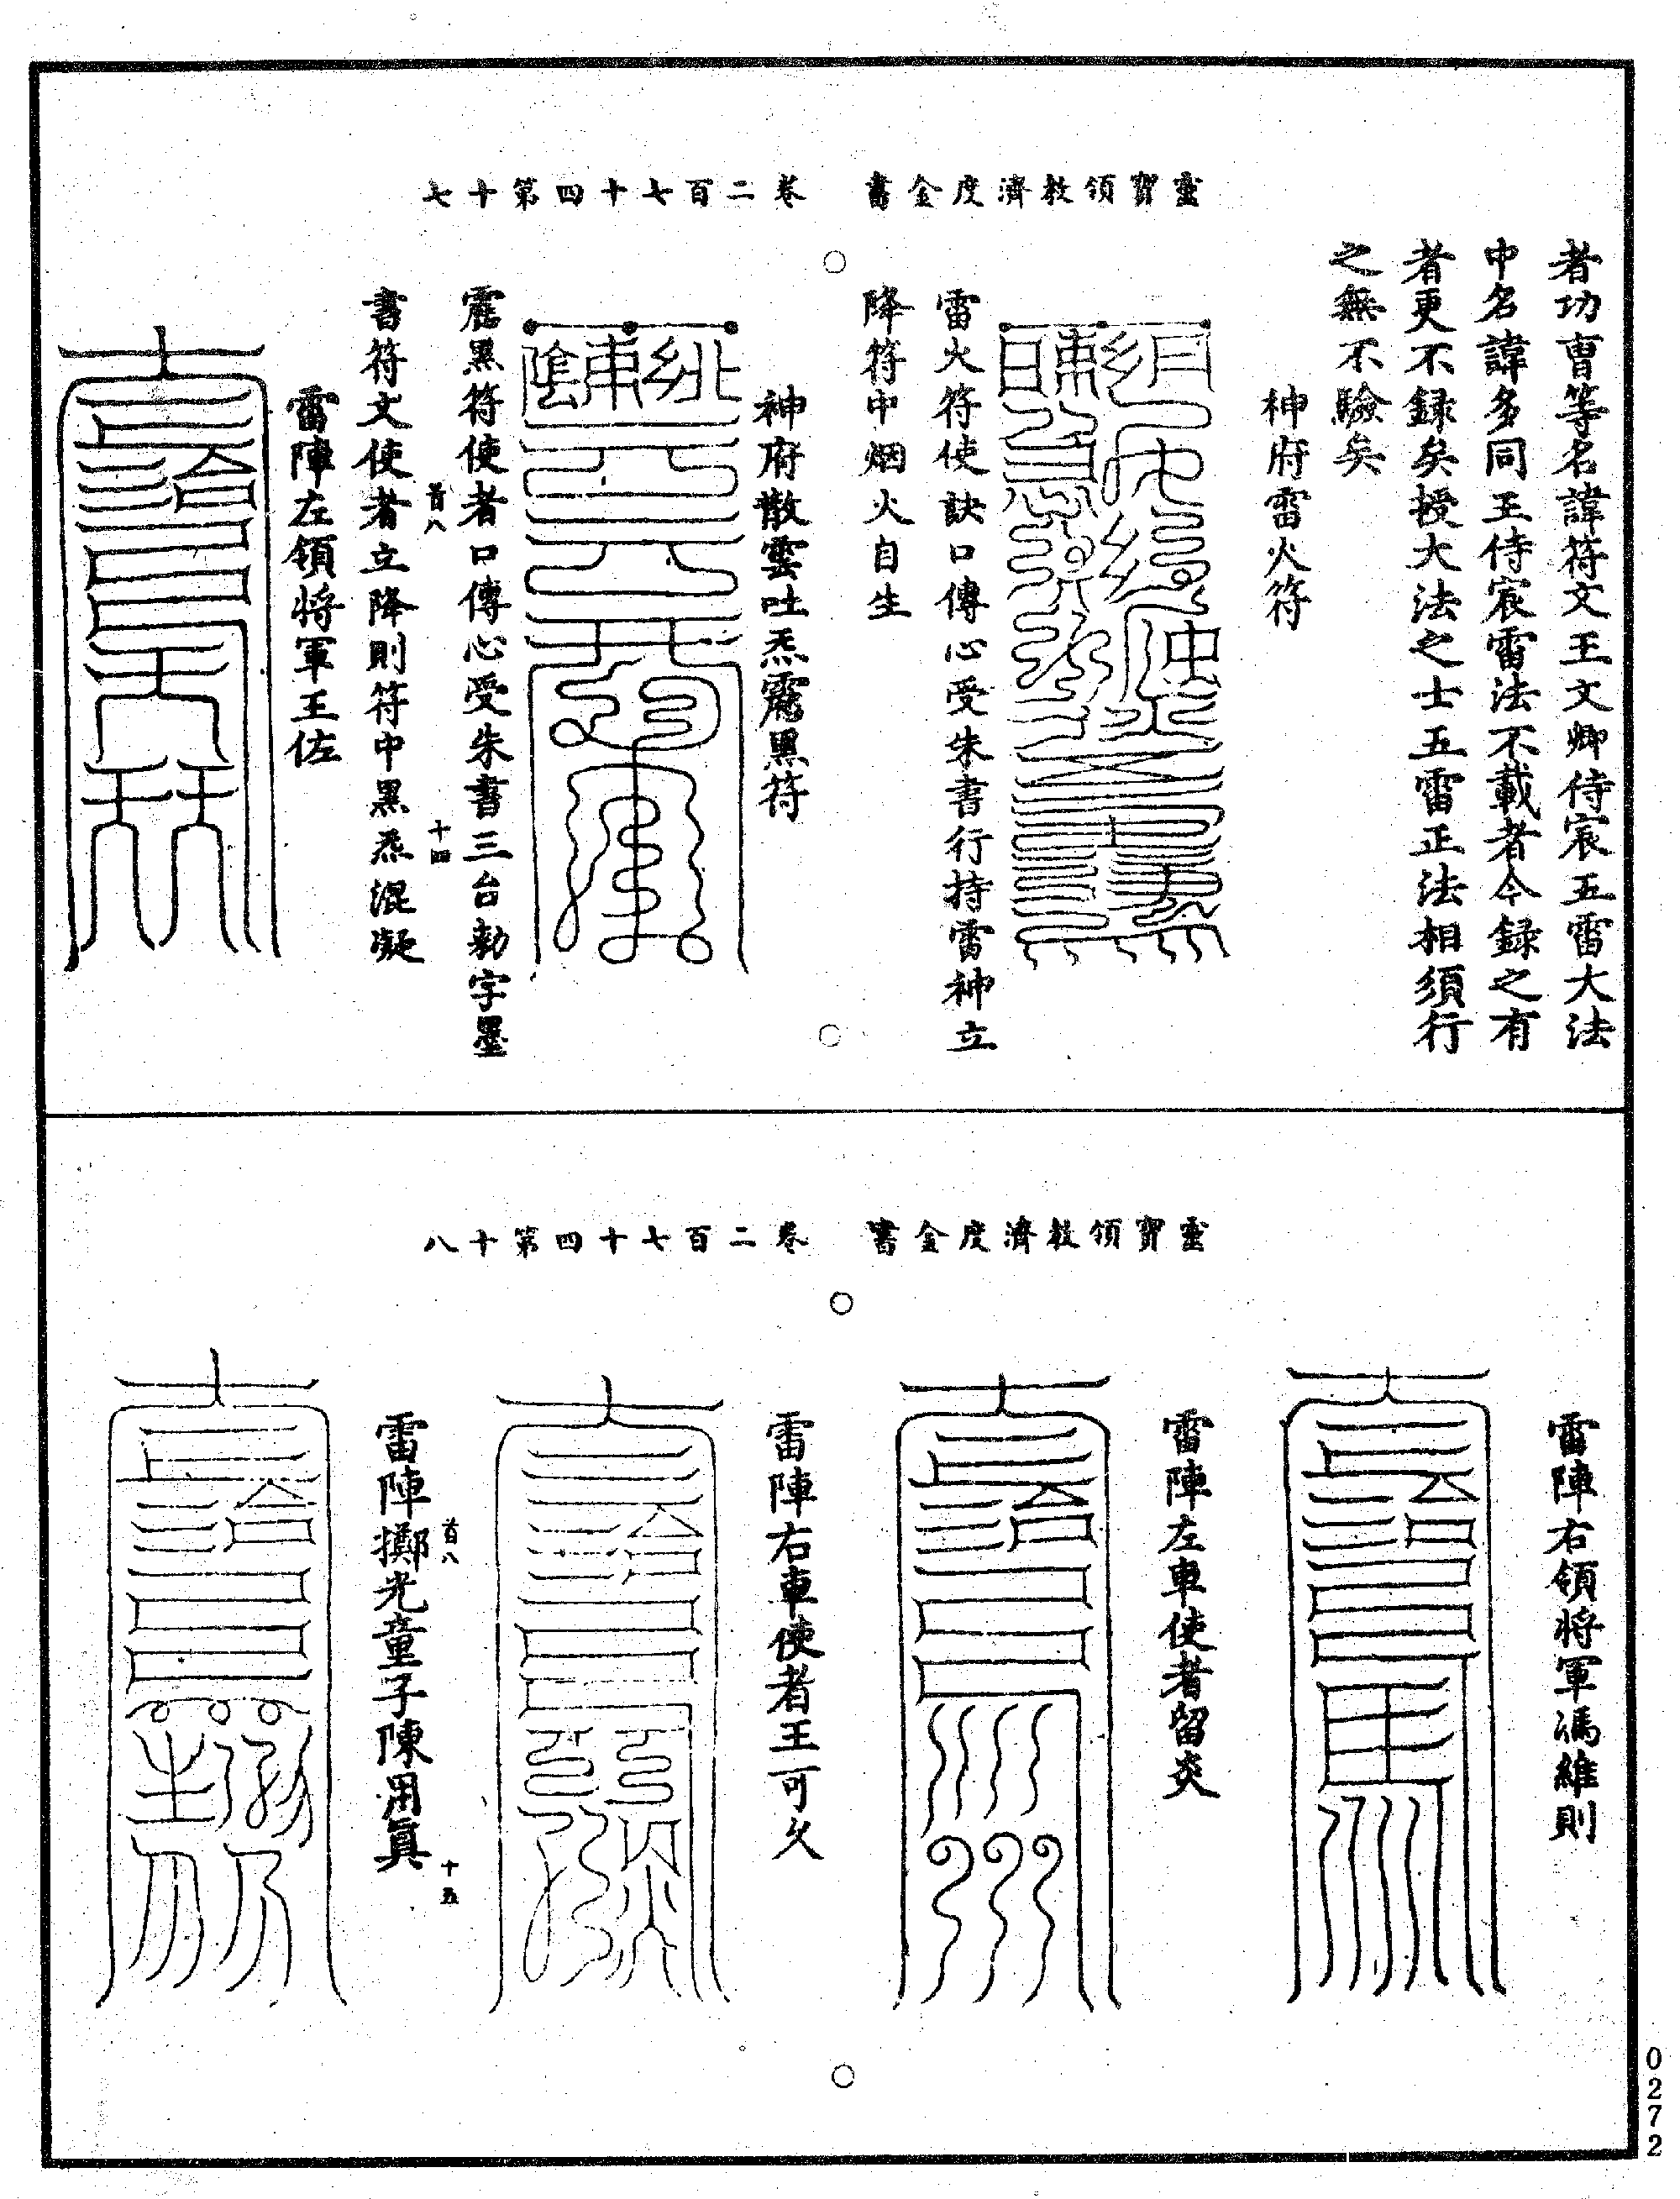 靈寶領教濟度金書　卷二百七十四第十七
者功曹等名諱符文王文卿侍宸五雷大法
中名諱多同王侍宸雷法不載者今録之有
者更不録矣授大法之士五雷正法相須行
之無不驗矣
神府雷火符
雷火符使訣口傳心受朱書行持雷神立
降符中烟火自生
神府散雲吐炁䨴黑符
黑符使者口傳心受朱書三台勑字墨
首八
十四
書符文使者立降則符中黑炁混凝
雷陣左領將軍王佐
靈寶領教濟度金書　卷二百七十四第十八
雷陣右領將軍馮維則
雷陣左車使者留炎
雷陣右車使者王可久
首八
十五
雷陣擲光童子陳用真
0272